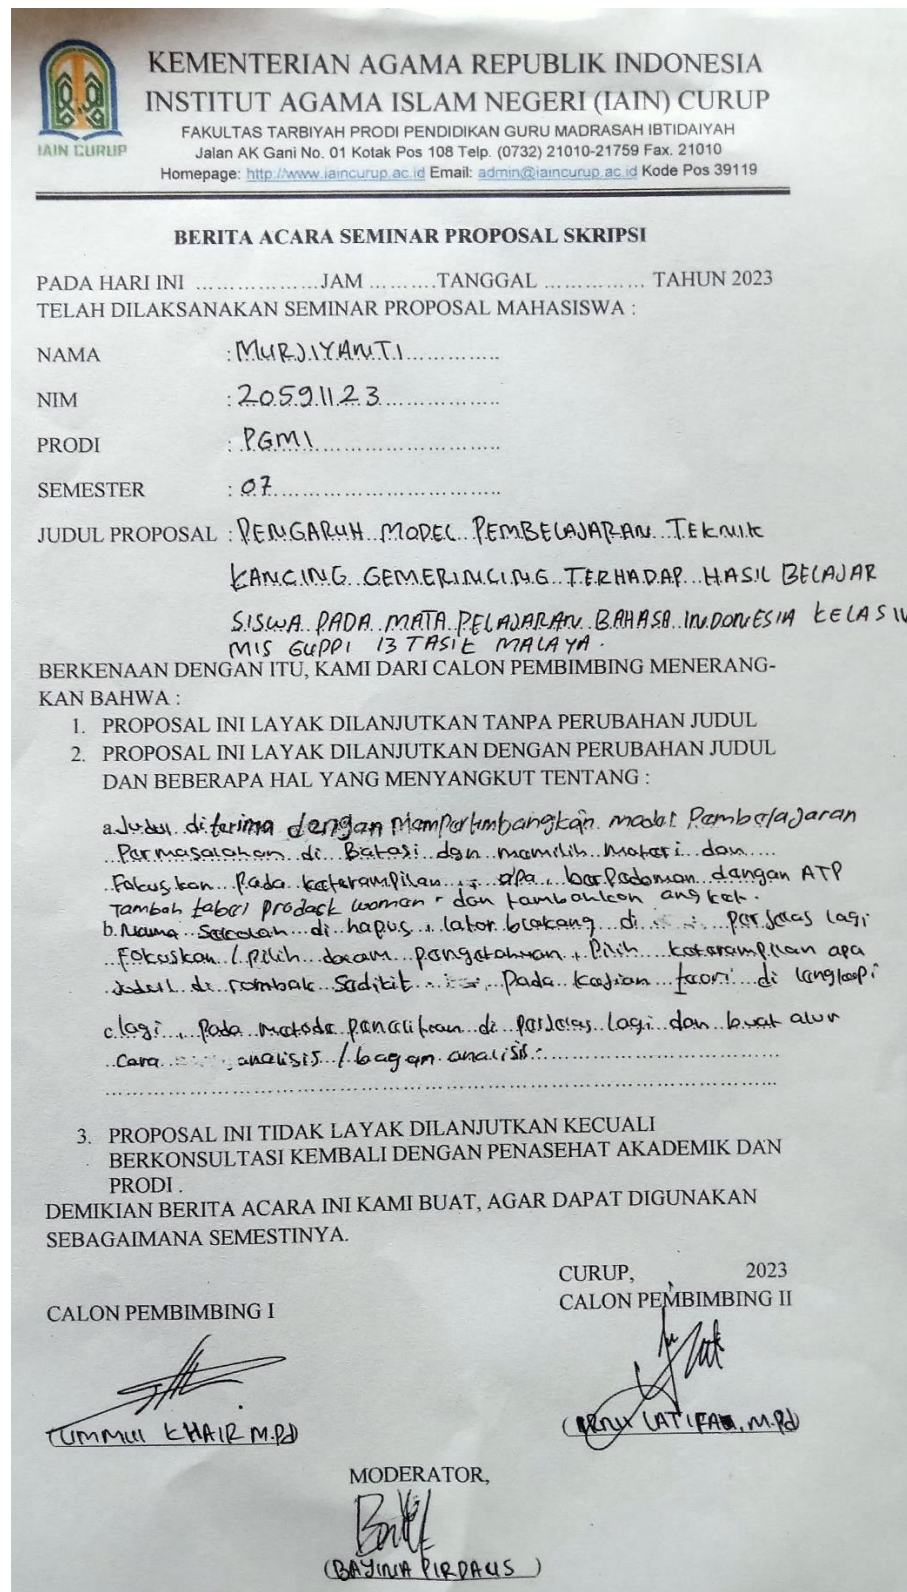 IAIN CURUP
KEMENTERIAN AGAMA REPUBLIK INDONESIA
INSTITUT AGAMA ISLAM NEGERI (IAIN) CURUP
FAKULTAS TARBIYAH PRODI PENDIDIKAN GURU MADRASAH IBTIDAIYAH
Jalan AK Gani No. 01 Kotak Pos 108 Telp. (0732) 21010-21759 Fax. 21010
Homepage: http://www.iaincurup.ac.id Email: admin@iaincurup.ac.id Kode Pos 39119
BERITA ACARA SEMINAR PROPOSAL SKRIPSI
PADA HARI INI ..................JAM ..........TANGGAL ............... TAHUN 2023
TELAH DILAKSANAKAN SEMINAR PROPOSAL MAHASISWA :
NAMA : MURJIYANTI
NIM : 20591123
PRODI : PGMI
SEMESTER : 07
JUDUL PROPOSAL : PENGARUH MODEL PEMBELAJARAN TEKNIK
KANCING GEMERINCING TERHADAP HASIL BELAJAR
SISWA PADA MATA PELAJARAN BAHASA INDONESIA KELAS IV
MIS GUPPI 13 TASIK MALAYA.
BERKENAAN DENGAN ITU, KAMI DARI CALON PEMBIMBING MENERANG-
KAN BAHWA :
1. PROPOSAL INI LAYAK DILANJUTKAN TANPA PERUBAHAN JUDUL
2. PROPOSAL INI LAYAK DILANJUTKAN DENGAN PERUBAHAN JUDUL
DAN BEBERAPA HAL YANG MENYANGKUT TENTANG :
a. Judul diterima dengan Mempertimbangkan model Pembelajaran
Permasalahan di Batasi dgn memilih Materi dan
Fokuskan Pada keterampilan apa, berPedoman dengan ATP
Tambah tabel dan tambahkan angket.
b. Nama Sekolah di hapus, latar blakang di Perjelas lagi
Fokuskan / pilih dalam pengetahuan, Pilih keterampilan apa
Judul di rombak Sedikit Pada Kajian teori di lengkapi
c. lagi, Pada metode Penelitian di Perjelas lagi dan buat alur
Cara analisis / bagan analisis.
3. PROPOSAL INI TIDAK LAYAK DILANJUTKAN KECUALI
BERKONSULTASI KEMBALI DENGAN PENASEHAT AKADEMIK DAN
PRODI .
DEMIKIAN BERITA ACARA INI KAMI BUAT, AGAR DAPAT DIGUNAKAN
SEBAGAIMANA SEMESTINYA.
CURUP, 2023
CALON PEMBIMBING I CALON PEMBIMBING II
(UMMUL KHAIR M.Pd) ( LATIFAH, M.Pd)
MODERATOR,
(BAYINIA PIRDAUS )